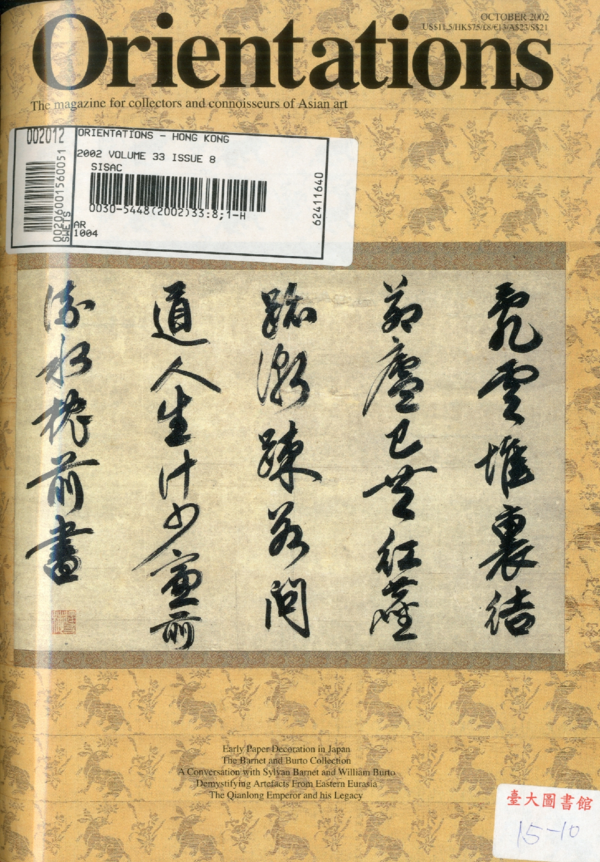 OCTOBER 2002
US$11.5/HK$75/£8/€13/A$23/S$21
Orientations
The magazine for collectors and connoisseurs of Asian art
002012
ORIENTATIONS - HONG KONG
2002 VOLUME 33 ISSUE 8
SISAC
0030-5448(2002)33:8;1-H
AR
1004
00206001560051
SWETS
62411640
亂雲堆裏結
茆廬已共紅塵
跡漸踈若問
道人生計少窗前
流水枕前書
Early Paper Decoration in Japan
The Barnet and Burto Collection
A Conversation with Sylvan Barnet and William Burto
Demystifying Artefacts From Eastern Eurasia
The Qianlong Emperor and his Legacy
臺大圖書館
15-10